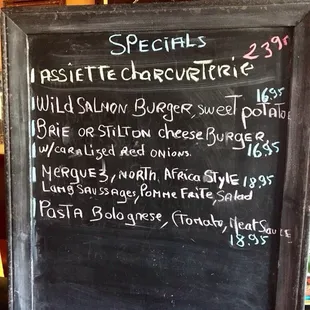 SPECIALS
ASSIETTE CHARCURTERIE 2395
WILD SALMON BURGER, SWEET POTATO 1695
BRIE OR STILTON CHEESE BURGER
W/CARALIZED RED ONIONS. 1695
MERGUEZ, NORTH AFRICA STYLE 1895
LAMB SAUSSAGES, POMME FRITE, SALAD
PASTA BOLOGNESE, (TOMATO, MEAT SAUCE
1895